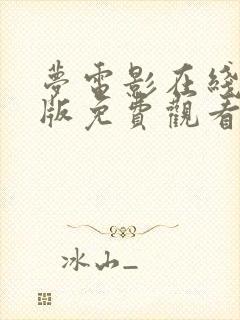 夢電影在綫
版免費觀看
冰山_